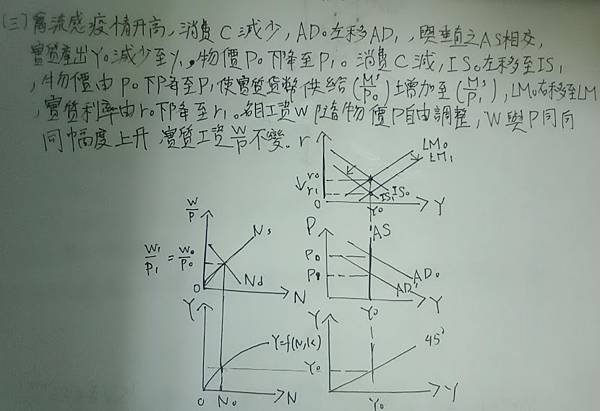 (三)禽流感疫情升高,消費C減少,AD₀左移AD₁,與垂直之AS相交,
實質產出Y₀減少至Y₁,物價P₀下降至P₁。消費C減,IS₀左移至IS₁
,物價由P₀下降至P₁使實質貨幣供給(M^s/P₀)增加至(M^s/P₁),LM₀右移至LM₁
,實質利率由r₀下降至r₁。名目工資W隨物價P自由調整,W與P同向
同幅度上升,實質工資W/P不變。
r
LM₀
LM₁
r₀
r₁
IS₀
IS₁
0
Y₀
Y
W/P
Ns
W₁/P₁ = W₀/P₀
Nd
0
N
P
AS
P₀
P₁
AD₀
AD₁
Y₀
Y
Y
Y=f(N,K)
0
N₀
N
Y
45°
Y₀
Y₀
Y